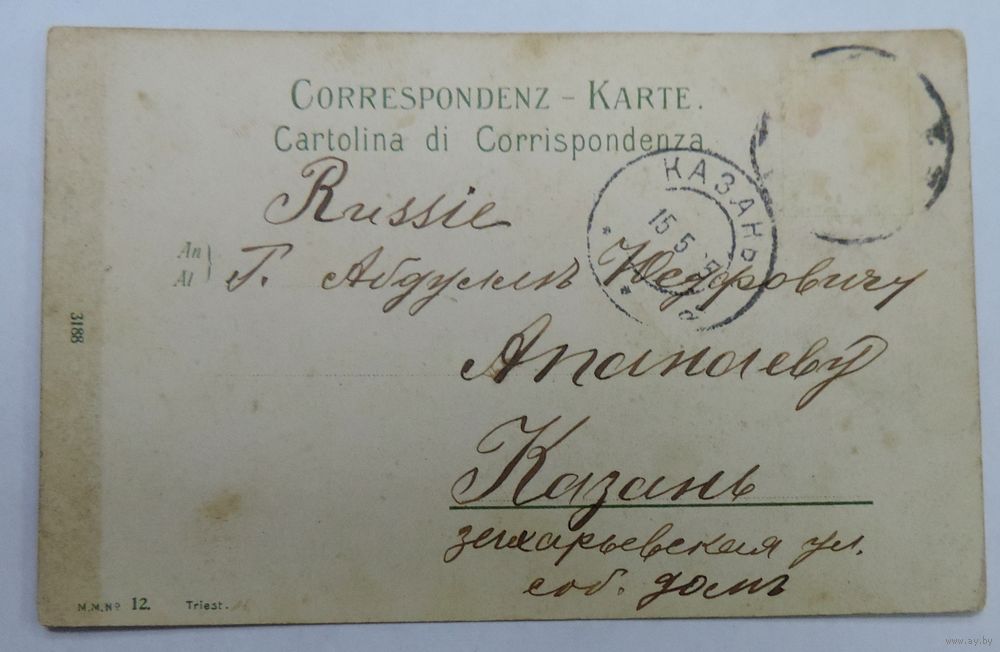 CORRESPONDENZ - KARTE.
Cartolina di Corrispondenza.
Russie
КАЗАНЬ
15 5
An
Al
Г. Абдуллъ Юсуфовичу
Апанаеву
Казань
захарьевская ул.
соб. домъ
3188
M.M.Nº 12. Triest.
www.ay.by